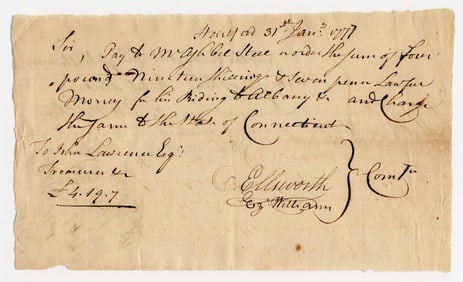 Hartford 31st Jany. 1777
Sir,
Pay to Mr Ashbel Steel or order the sum of four
pound Nineteen Shillings & Seven pence Lawful
Money for his Riding to Albany &c and Charge
the Same to the State of Connecticut
To John Lawrence Esqr.
Treasurer &c
£4.19.7
O Ellsworth
Ezr Williams
Comtee